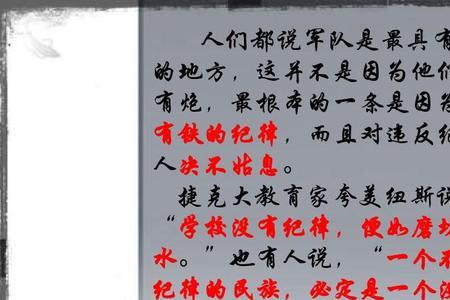 人们都说军队是最具有
的地方，这并不是因为他们
有炮，最根本的一条是因为
有铁的纪律，而且对违反纪
人决不姑息。
捷克大教育家夸美纽斯说
“学校没有纪律，便如磨坊
水。”也有人说，“一个不
纪律的民族，必定是一个没